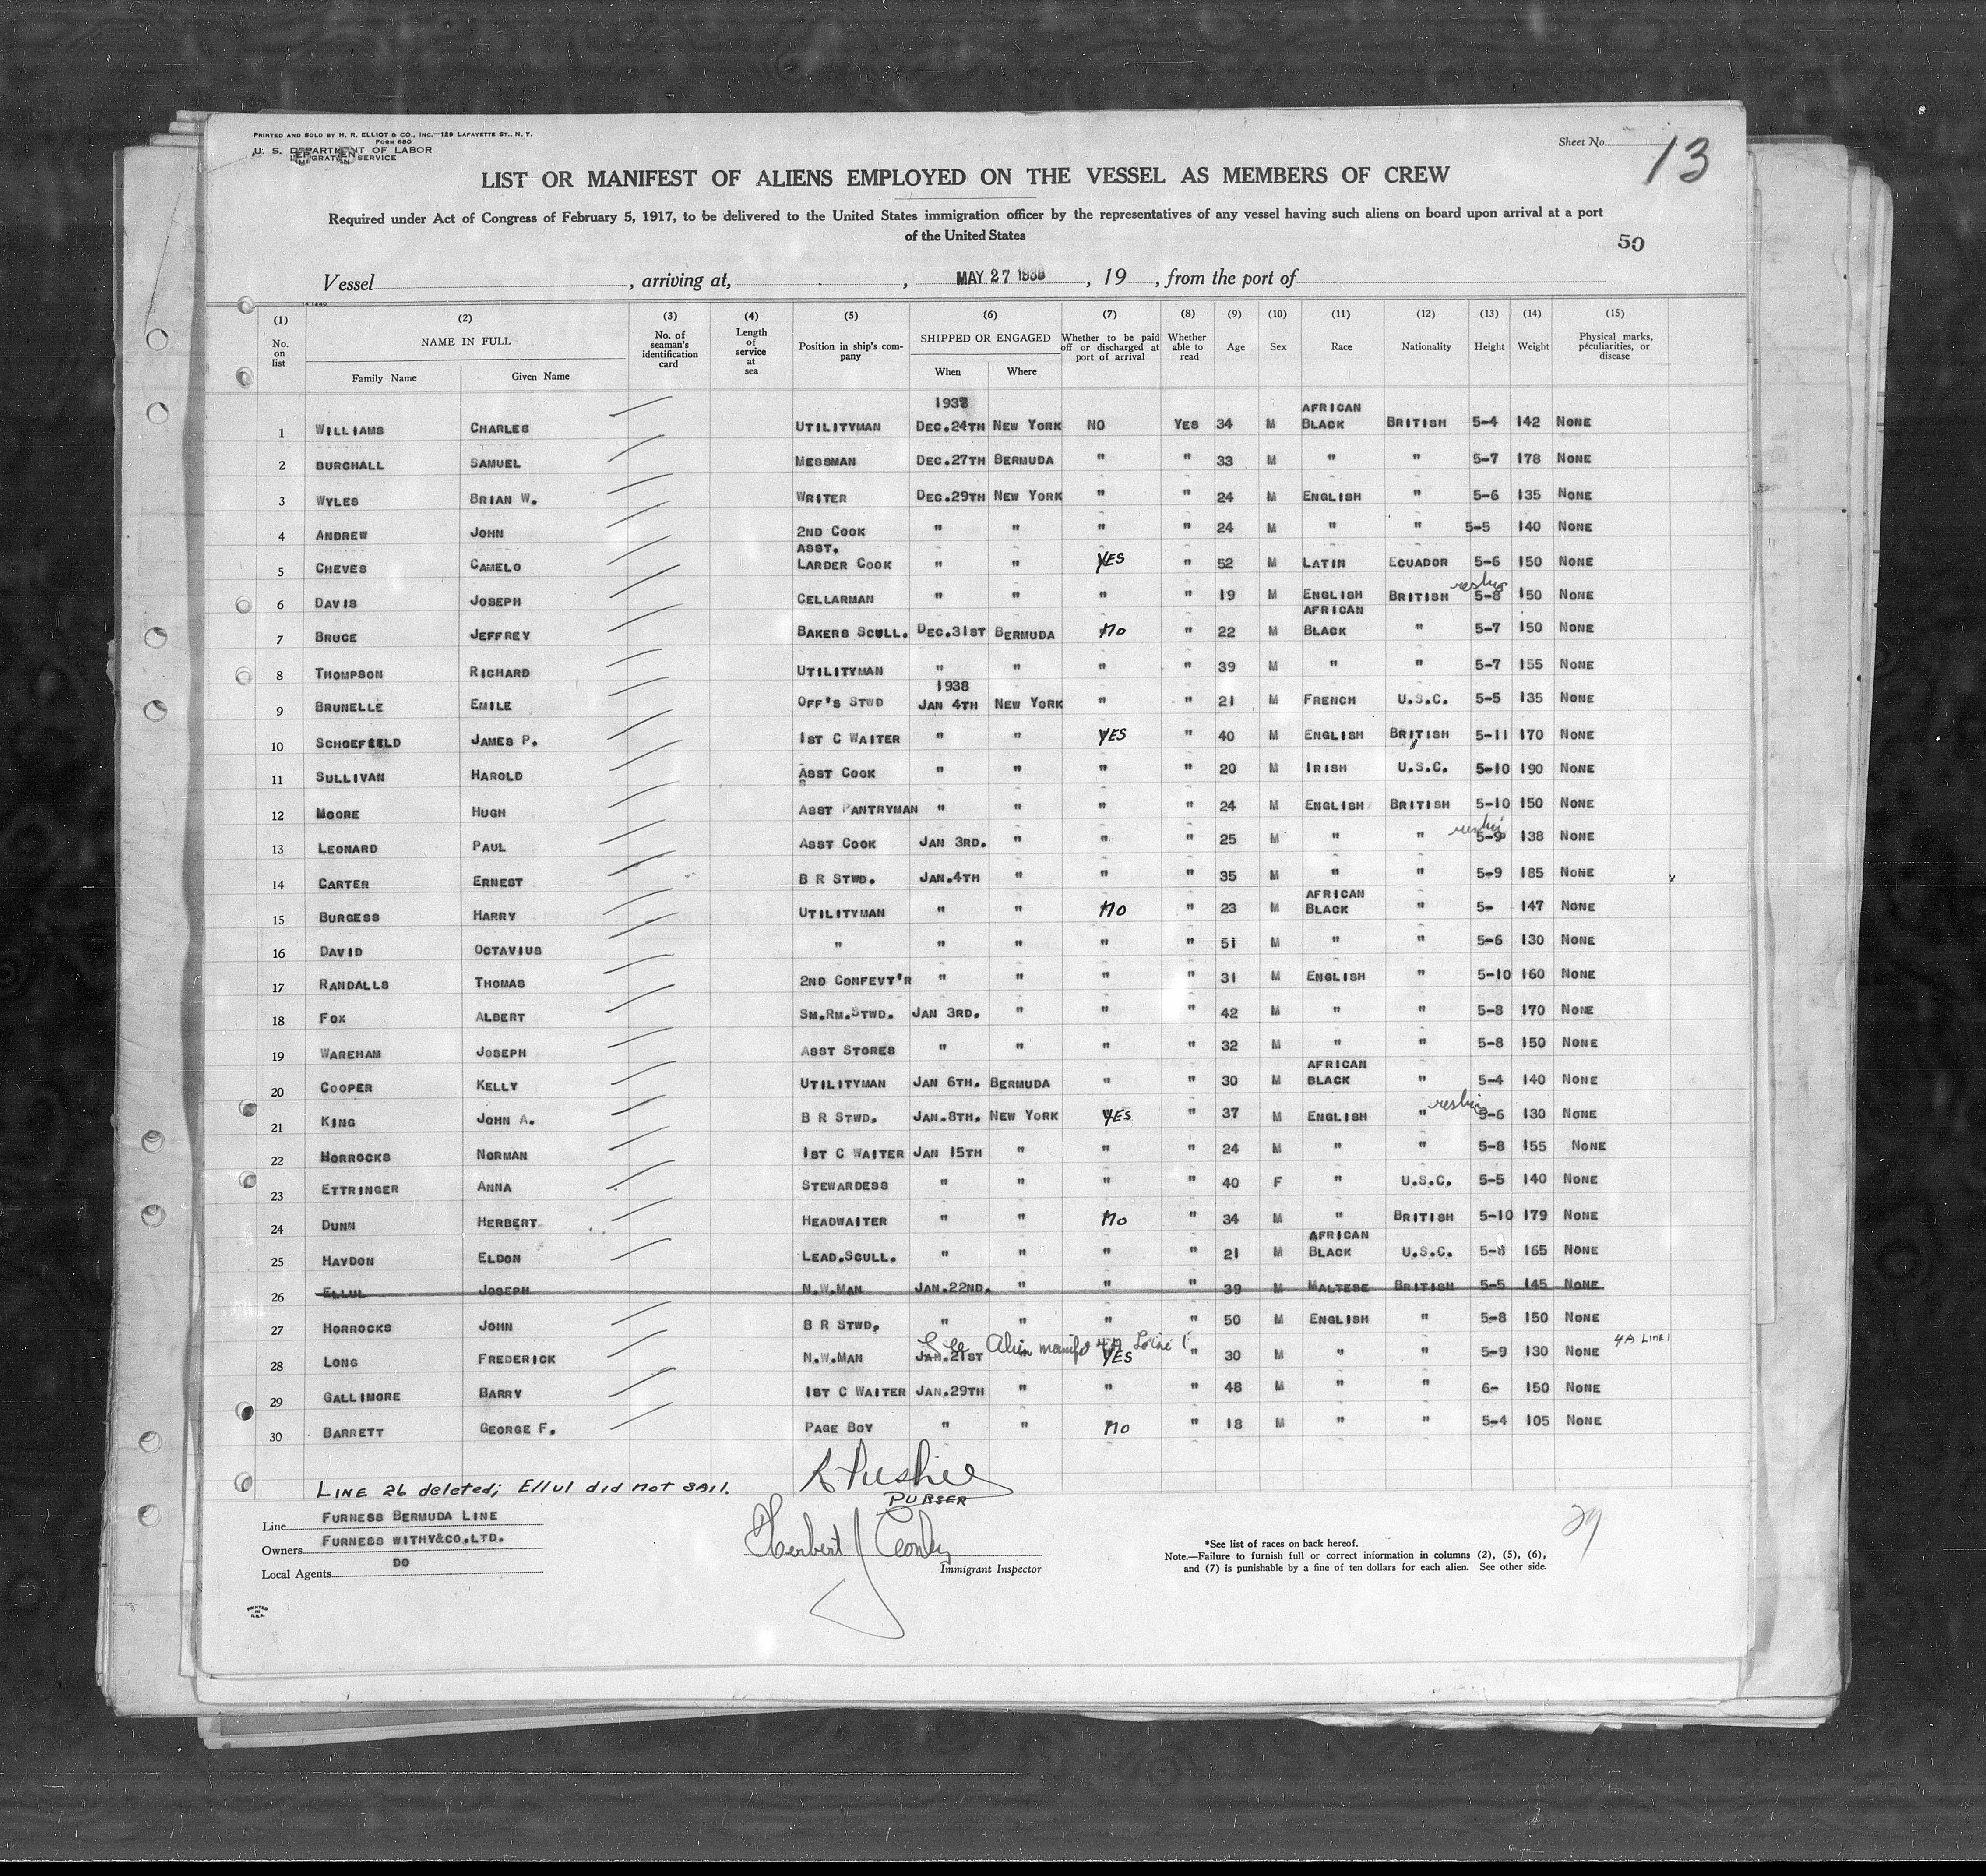 PRINTED AND SOLD BY H. R. ELLIOT & CO., INC.—129 LAFAYETTE ST., N. Y.
FORM 680
U. S. DEPARTMENT OF LABOR
IMMIGRATION SERVICE
Sheet No. 13
LIST OR MANIFEST OF ALIENS EMPLOYED ON THE VESSEL AS MEMBERS OF CREW
Required under Act of Congress of February 5, 1917, to be delivered to the United States immigration officer by the representatives of any vessel having such aliens on board upon arrival at a port
of the United States
50
Vessel , arriving at, , MAY 27 1938 , 19 , from the port of
(1) (2) (3) (4) (5) (6) (7) (8) (9) (10) (11) (12) (13) (14) (15)
No. on list NAME IN FULL Family Name Given Name No. of seaman's identification card Length of service at sea Position in ship's company SHIPPED OR ENGAGED When Where Whether to be paid off or discharged at port of arrival Whether able to read Age Sex Race Nationality Height Weight Physical marks, peculiarities, or disease
1937 AFRICAN
1 WILLIAMS CHARLES UTILITYMAN DEC.24TH NEW YORK NO YES 34 M BLACK BRITISH 5-4 142 NONE
2 BURCHALL SAMUEL MESSMAN DEC.27TH BERMUDA " " 33 M " " 5-7 178 NONE
3 WYLES BRIAN W. WRITER DEC.29TH NEW YORK " " 24 M ENGLISH " 5-6 135 NONE
4 ANDREW JOHN 2ND COOK " " " " 24 M " " 5-5 140 NONE
ASST.
5 CHEVES CAMELO LARDER COOK " " YES " 52 M LATIN ECUADOR 5-6 150 NONE
6 DAVIS JOSEPH CELLARMAN " " " " 19 M ENGLISH BRITISH 5-8 150 NONE
AFRICAN
7 BRUCE JEFFREY BAKERS SCULL. DEC.31ST BERMUDA No " 22 M BLACK " 5-7 150 NONE
8 THOMPSON RICHARD UTILITYMAN " " " " 39 M " " 5-7 155 NONE
1938
9 BRUNELLE EMILE OFF'S STWD JAN 4TH NEW YORK " " 21 M FRENCH U.S.C. 5-5 135 NONE
10 SCHOEFIELD JAMES P. 1ST C WAITER " " YES " 40 M ENGLISH BRITISH 5-11 170 NONE
11 SULLIVAN HAROLD ASST COOK " " " " 20 M IRISH U.S.C. 5-10 190 NONE
12 MOORE HUGH ASST PANTRYMAN " " " " 24 M ENGLISH BRITISH 5-10 150 NONE
13 LEONARD PAUL ASST COOK JAN 3RD. " " " 25 M " " 5-9 138 NONE
14 CARTER ERNEST B R STWD. JAN.4TH " " " 35 M " " 5-9 185 NONE
AFRICAN
15 BURGESS HARRY UTILITYMAN " " No " 23 M BLACK " 5- 147 NONE
16 DAVID OCTAVIUS " " " " " 51 M " " 5-6 130 NONE
17 RANDALLS THOMAS 2ND CONFEVT'R " " " " 31 M ENGLISH " 5-10 160 NONE
18 FOX ALBERT SM.RM.STWD. JAN 3RD. " " " 42 M " " 5-8 170 NONE
19 WAREHAM JOSEPH ASST STORES " " " " 32 M " " 5-8 150 NONE
AFRICAN
20 COOPER KELLY UTILITYMAN JAN 6TH. BERMUDA " " 30 M BLACK " 5-4 140 NONE
21 KING JOHN A. B R STWD. JAN.8TH. NEW YORK YES " 37 M ENGLISH " 5-6 130 NONE
22 HORROCKS NORMAN 1ST C WAITER JAN 15TH " " " 24 M " " 5-8 155 NONE
23 ETTRINGER ANNA STEWARDESS " " " " 40 F " U.S.C. 5-5 140 NONE
24 DUNN HERBERT HEADWAITER " " No " 34 M " BRITISH 5-10 179 NONE
AFRICAN
25 HAYDON ELDON LEAD.SCULL. " " " " 21 M BLACK U.S.C. 5-8 165 NONE
26 ELLUL JOSEPH N.W.MAN JAN.22ND. " " " 39 M MALTESE BRITISH 5-5 145 NONE
27 HORROCKS JOHN B R STWD. " " " " 50 M ENGLISH " 5-8 150 NONE
See Alien manifest 4A Line 1 4A LINE 1
28 LONG FREDERICK N.W.MAN JAN.21ST " YES " 30 M " " 5-9 130 NONE
29 GALLIMORE BARRY 1ST C WAITER JAN.29TH " " " 48 M " " 6- 150 NONE
30 BARRETT GEORGE F. PAGE BOY " " No " 18 M " " 5-4 105 NONE
LINE 26 deleted; Ellul did not SAIL.
PURSER
Line FURNESS BERMUDA LINE
Owners FURNESS WITHY&CO.LTD.
Local Agents DO
Herbert J
Immigrant Inspector
29
*See list of races on back hereof.
Note.—Failure to furnish full or correct information in columns (2), (5), (6),
and (7) is punishable by a fine of ten dollars for each alien. See other side.
PRINTED
IN
U.S.A.